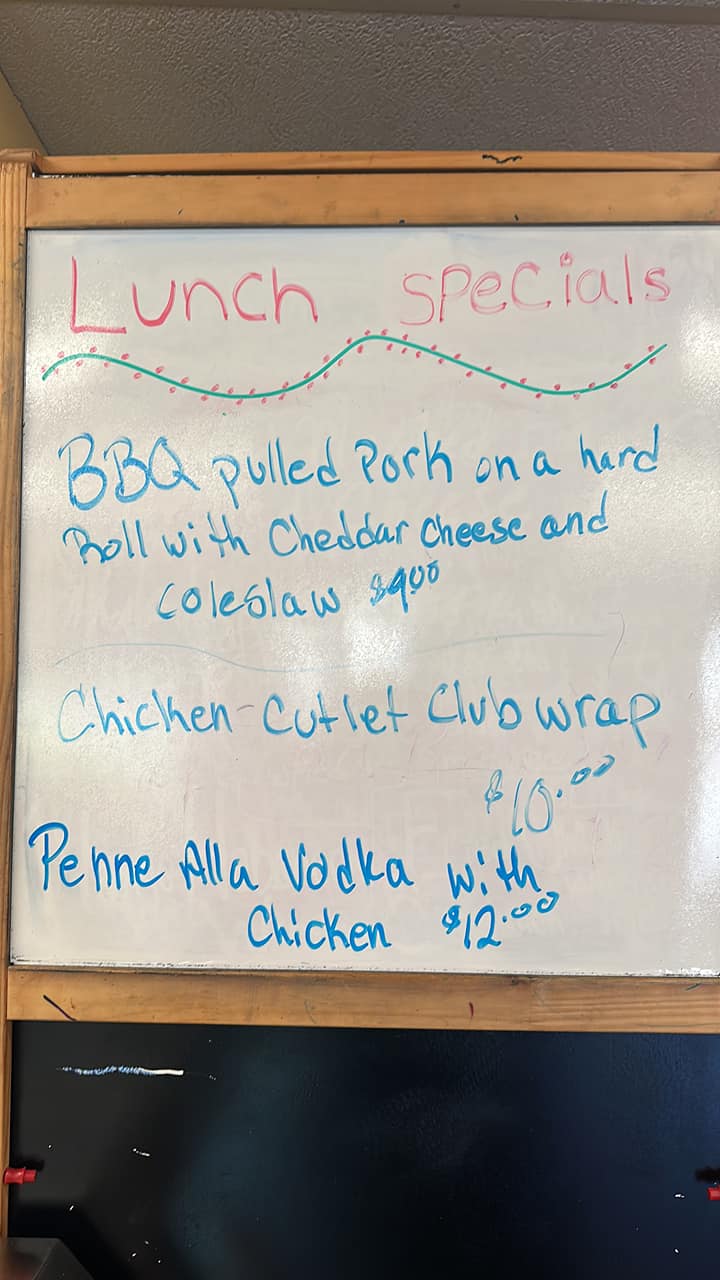 Lunch specials
BBQ pulled Pork on a hard
Roll with Cheddar Cheese and
coleslaw $9.00
Chicken Cutlet Club wrap
$10.00
Penne Alla Vodka with
Chicken $12.00